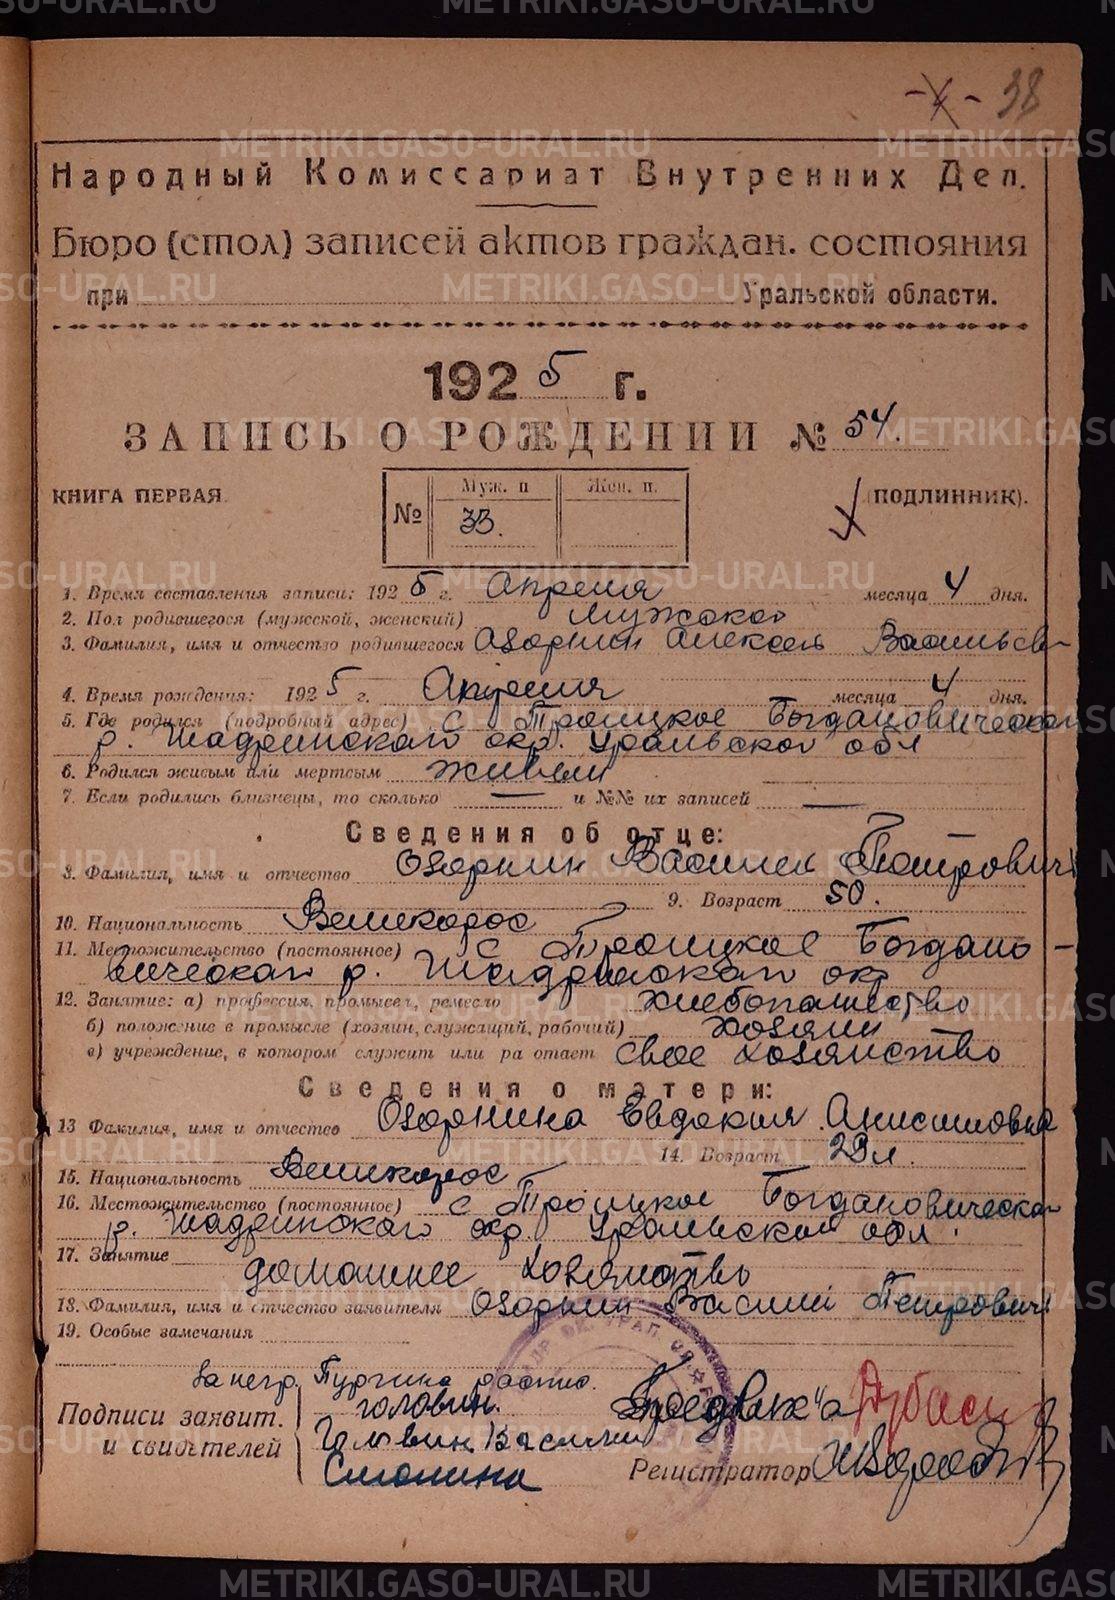 38
Народный Комиссариат Внутренних Дел.
Бюро (стол) записей актов граждан. состояния
при Уральской области.
1925 г.
ЗАПИСЬ О РОЖДЕНИИ № 54.
КНИГА ПЕРВАЯ (ПОДЛИННИК).
№ Муж. п Жен. п.
33.
1. Время составления записи: 1925 г. Апреля месяца 4 дня.
2. Пол родившегося (мужской, женский) Мужской
3. Фамилия, имя и отчество родившегося Озорнин Алексей Васильев
4. Время рождения: 1925 г. Апреля месяца 4 дня.
5. Где родился (подробный адрес) с Троицкое Богдановической
р. Шадринского окр. Уральской обл
6. Родился живым или мертвым живым
7. Если родились близнецы, то сколько — и №№ их записей —
Сведения об отце:
8. Фамилия, имя и отчество Озорнин Василий Петрович
9. Возраст 50.
10. Национальность Великорос
11. Местожительство (постоянное) с Троицкое Богдано-
вической р. Шадринской окр
12. Занятие: а) профессия, промысел, ремесло хлебопашество
б) положение в промысле (хозяин, служащий, рабочий) хозяин
в) учреждение, в котором служит или ра отает свое хозяйство
Сведения о матери:
13 Фамилия, имя и отчество Озорнина Евдокия Анисимовна
14. Возраст 29 л.
15. Национальность Великорос
16. Местожительство (постоянное) с Троицкое Богдановической
р. Шадринского окр. Уральской обл.
17. Занятие домашнее хозяйство
18. Фамилия, имя и отчество заявителя Озорнин Василий Петрович
19. Особые замечания
За негр.
Головин.
Подписи заявит. Головин Василий
и свидетелей Смонина
Регистратор
METRIKI.GASO-URAL.RU